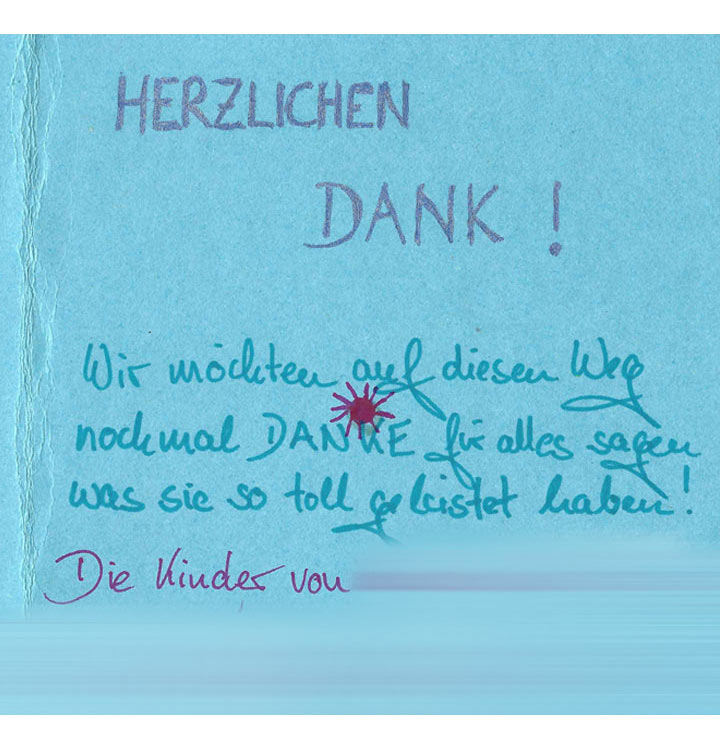 HERZLICHEN
DANK !
Wir möchten auf diesen Weg
nochmal DANKE für alles sagen
was sie so toll geleistet haben!
Die Kinder von